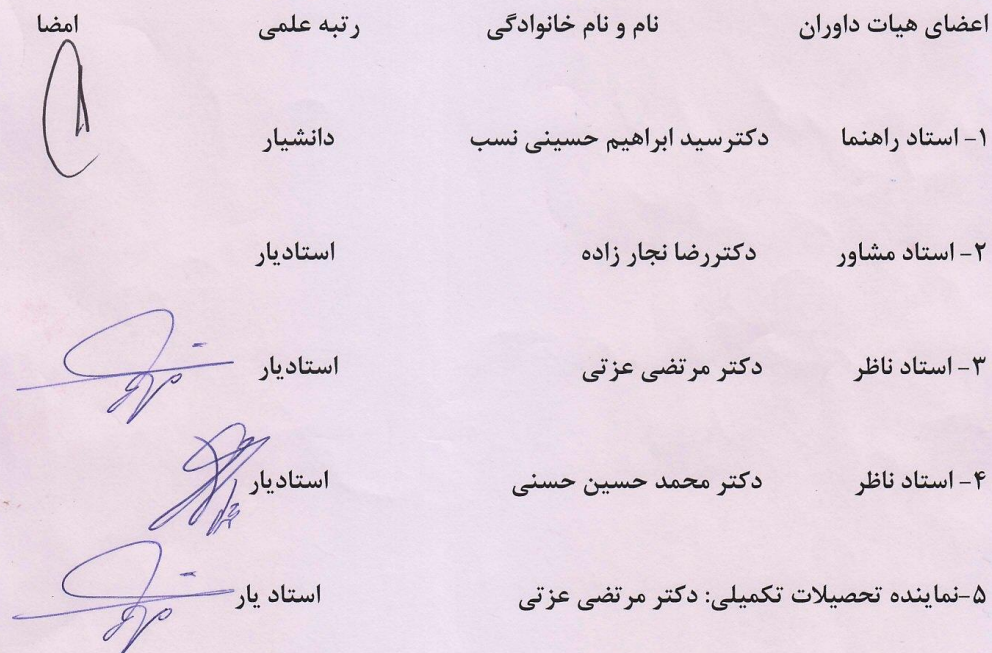 اعضای هیات داوران نام و نام خانوادگی رتبه علمی امضا
۱- استاد راهنما دکترسید ابراهیم حسینی نسب دانشیار
۲- استاد مشاور دکتررضا نجار زاده استادیار
۳- استاد ناظر دکتر مرتضی عزتی استادیار
۴- استاد ناظر دکتر محمد حسین حسنی استادیار
۵-نماینده تحصیلات تکمیلی: دکتر مرتضی عزتی استاد یار